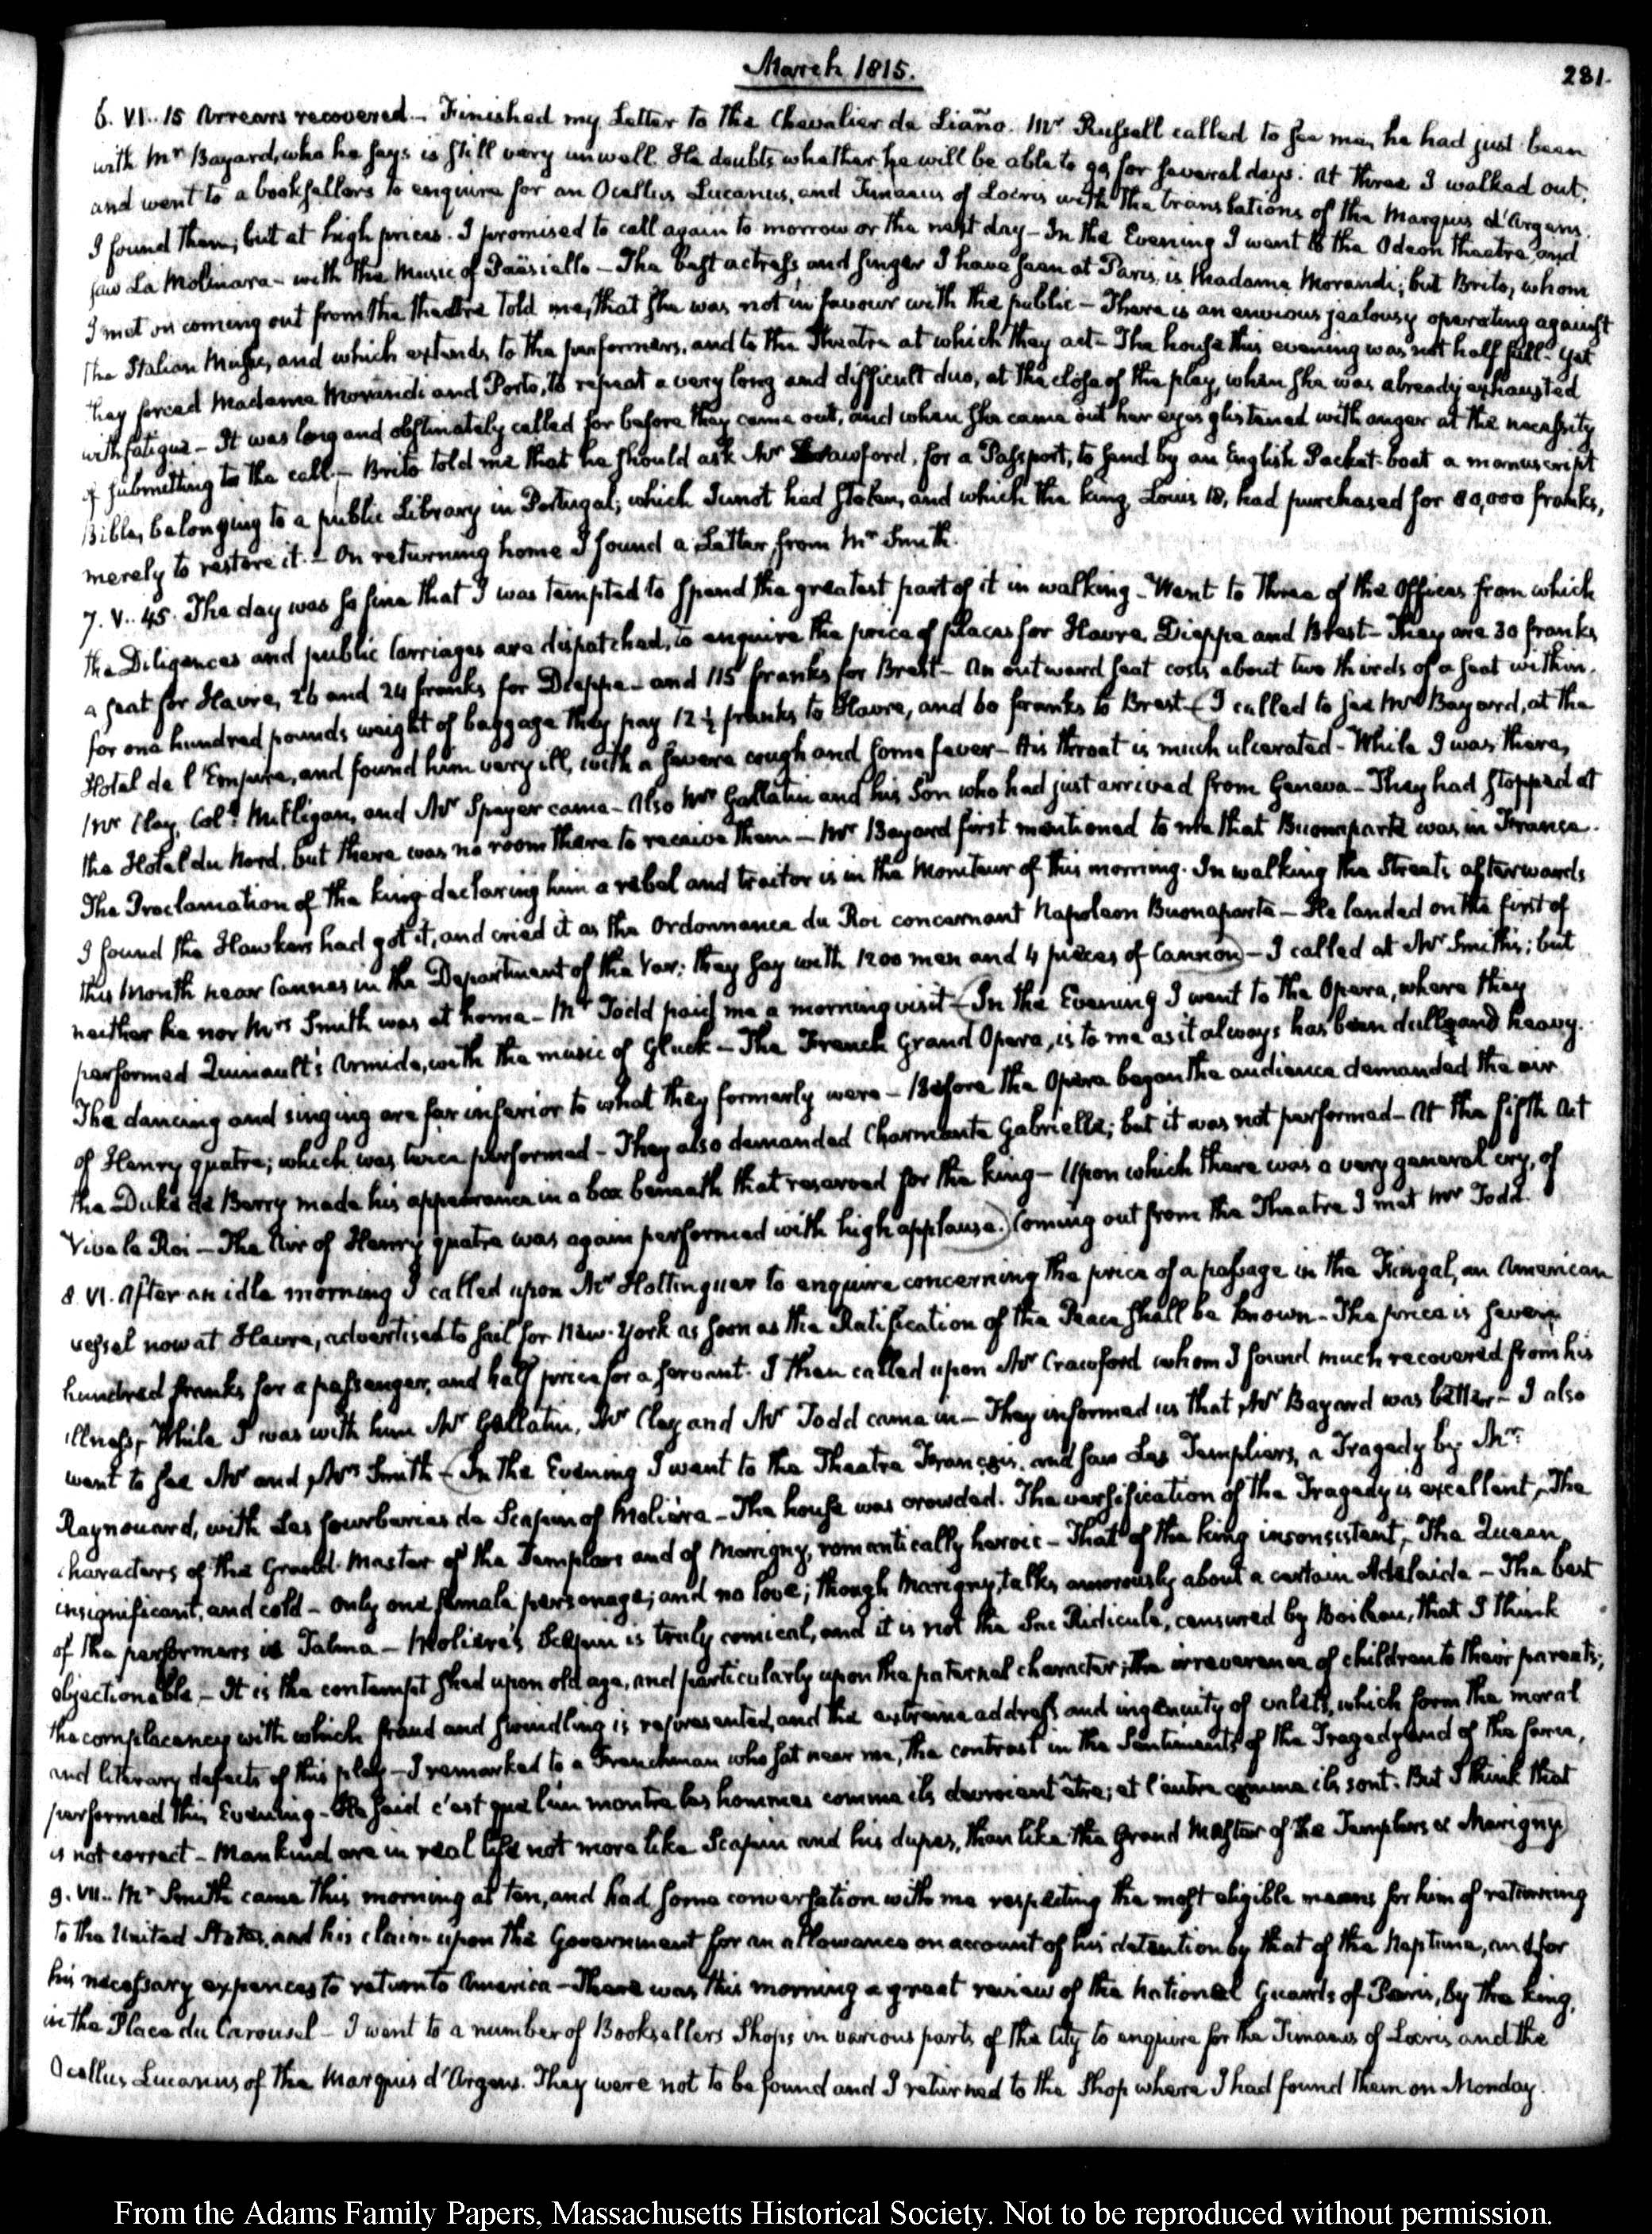 March 1815.
281.
6. VI.. 15 Arrears recovered.- Finished my Letter to the Chevalier de Liaño. Mr Russell called to see me, he had just been
with Mr Bayard, who he says is still very unwell. He doubts whether he will be able to go for several days. At three I walked out,
and went to a booksellers to enquire for an Ocellus Lucanus, and Timaeus of Locris with the translations of the Marquis d'Argens.
I found them, but at high prices. I promised to call again to morrow or the next day- In the Evening I went to the Odeon theatre, and
saw La Molinara- with the Music of Paësiello- The best actress, and singer I have seen at Paris, is Madame Morandi; but Brito, whom
I met on coming out from the theatre told me, that she was not in favour with the public- There is an envious jealousy operating against
the Italian Music, and which extends to the performers, and to the Theatre at which they act- The house this evening was not half full- Yet
they forced Madame Morandi and Porto, to repeat a very long and difficult duo, at the close of the play, when she was already exhausted
with fatigue- It was long and obstinately called for before they came out, and when she came out her eyes glistened with anger at the necessity
of submitting to the call.- Brito told me that he should ask Mr Crawford, for a Passport, to send by an English Packet-boat a manuscript
Bible, belonging to a public Library in Portugal; which Junot had stolen, and which the king, Louis 18, had purchased for 80,000 franks,
merely to restore it.- On returning home I found a Letter from Mr Smith.
7. V.. 45. The day was so fine that I was tempted to spend the greatest part of it in walking- Went to three of the Offices from which
the Diligences and public Carriages are dispatched, to enquire the price of places for Havre, Dieppe and Brest- They are 30 franks
a seat for Havre, 26 and 24 franks for Dieppe- and 115 franks for Brest- An outward seat costs about two thirds of a seat within.
for one hundred pounds weight of baggage they pay 12½ franks to Havre, and 60 franks to Brest- (I called to see Mr Bayard, at the
Hotel de l'Empire, and found him very ill, with a severe cough and some fever- His throat is much ulcerated- While I was there,
Mr Clay, Coll Milligan, and Mr Speyer came- Also Mr Gallatin and his Son who had just arrived from Geneva- They had stopped at
the Hotel du Nord, but there was no room there to receive them- Mr Bayard first mentioned to me that Buonaparte was in France.
The Proclamation of the king declaring him a rebel and traitor is in the Moniteur of this morning. In walking the Streets afterwards
I found the Hawkers had got it, and cried it as the Ordonnance du Roi concernant Napoleon Buonaparte- He landed on the first of
this Month near Cannes in the Department of the Var: they say with 1200 men and 4 pieces of Cannon)- I called at Mr Smith's; but
neither he nor Mrs Smith was at home- Mr Todd paid me a morning visit- (In the Evening I went to the Opera, where they
performed Quinault's Armide, with the music of Gluck- The French Grand Opera, is to me as it always has been dull and heavy.
The dancing and singing are far inferior to what they formerly were- Before the Opera began the audience demanded the air
of Henry quatre; which was twice performed- They also demanded Charmante Gabrielle; but it was not performed- At the fifth Act
the Duke de Berry made his appearance in a box beneath that reserved for the king- Upon which there was a very general cry, of
Vive le Roi- The Air of Henry quatre was again performed with high applause.) Coming out from the Theatre I met Mr Todd.
8. VI. After an idle morning I called upon Mr Hottinguer to enquire concerning the price of a passage in the Fingal, an American
vessel now at Havre, advertised to sail for New-York as soon as the Ratification of the Peace shall be known- The price is seven
hundred franks for a passenger, and half price for a servant. I then called upon Mr Crawford whom I found much recovered from his
illness- While I was with him Mr Gallatin, Mr Clay and Mr Todd came in- They informed us that Mr Bayard was better- I also
went to see Mr and Mrs Smith- (In the Evening I went to the Theatre Français, and saw Les Templiers, a Tragedy by Mr
Raynouard, with Les fourberies de Scapin of Moliere- The house was crowded. The versification of the Tragedy is excellent, The
characters of the Grand Master of the Templars and of Marigny, romantically heroic- That of the king inconsistent, The Queen,
insignificant, and cold- Only one female personage; and no love; though Marigny, talks amorously about a certain Adelaide- The best
of the performers is Talma- Moliere's Scapin is truly comical, and it is not the Sac Ridicule, censured by Boileau, that I think
objectionable- It is the contempt shed upon old age, and particularly upon the paternal character; the irreverence of children to their parents;
the complacency with which fraud and swindling is represented, and the extreme address and ingenuity of valets, which form the moral
and literary defects of this play- I remarked to a Frenchman who sat near me, the contrast in the Sentiments of the Tragedy and of the farce,
performed this Evening- He said c'est que l'un montre les hommes comme ils devroient être; et l'autre comme ils sont. But I think that
is not correct- Mankind are in real life not more like Scapin and his dupes, than like the Grand Master of the Templars or Marigny)
9. VII.. Mr Smith came this morning at ten, and had some conversation with me respecting the most eligible means for him of returning
to the United States, and his claim upon the Government for an allowance on account of his detention by that of the Neptune, and for
his necessary expences to return to America- There was this morning a great review of the National Guards of Paris, by the king,
in the Place du Carousel- I went to a number of Booksellers Shops in various parts of the City to enquire for the Timaeus of Locris and the
Ocellus Lucanus of the Marquis d'Argens. They were not to be found and I returned to the Shop where I had found them on Monday.
From the Adams Family Papers, Massachusetts Historical Society. Not to be reproduced without permission.